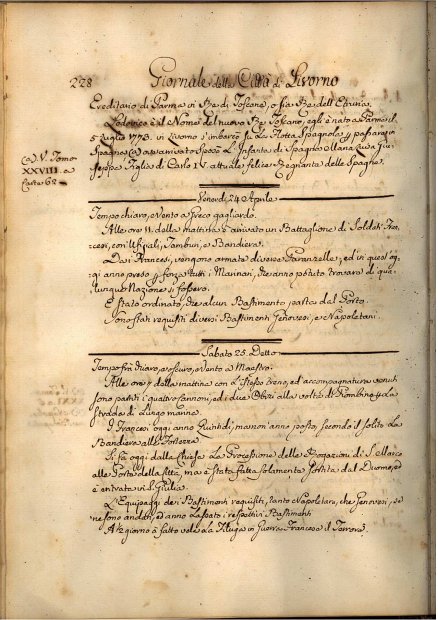 228 Giornale della Città di Livorno
Ereditario di Parma in Re di Toscana, o sia Re dell'Etruria.
Lodovico è il Nome del nuovo Re Toscano, egli è nato a Parma il
5 Luglio 1773. in Livorno s'imbarcò su La Flotta Spagnola p passare in
(a) V. Tomo
XXVIII a
Carte 62
Spagna (a) ove arrivato sposò L'Infanta di Spagna Maria Luisa Giu-
seppa Figlia di Carlo IV. attuale felice Regnante delle Spagne.
Venerdì 24 Aprile
Tempo chiaro, e Vento a Greco gagliardo.
Alle ore 11. della mattina è arrivato un Battaglione di Soldati Fran-
cesi, con Ufiziali, Tamburi, e Bandiera.
Dai Francesi, vengono armate diverse Paranzelle, ed in quest'og-
gi anno preso p forza tutti i Marinari, che anno potuto trovare di qua-
lunque Nazione si fossero.
È stato ordinato, che alcun Bastimento parta dal Porto.
Sono stati requisiti diversi Bastimenti Genovesi, e Napoletani.
Sabato 25. Detto
Tempo fra chiaro, e scuro, e Vento a Maestro.
Alle ore 7 della mattina con L'istesso treno, ed accompagnatura venuti
sono partiti i quattro Cannoni, ed i due Obizi alla volta di Piombino p La
Strada di Lungo marina.
I Francesi oggi anno Quintidì, ma non anno posto, secondo il solito La
Bandiera alle Fortezze.
Si fà oggi dalla Chiesa La Processione delle Rogazioni di S. Marco
alle Porte della Città, ma è stata fatta solamente sortita dal Duomo, ed
è entrata in S. Giulia.
L'Equipaggi dei Bastimenti requisiti, tanto Napoletani, che Genovesi, se
ne sono anditi, ed anno Lassato i respettivi Bastimenti
A ½ giorno à fatto vela La Filuga in Guerra Francese il Terrore.